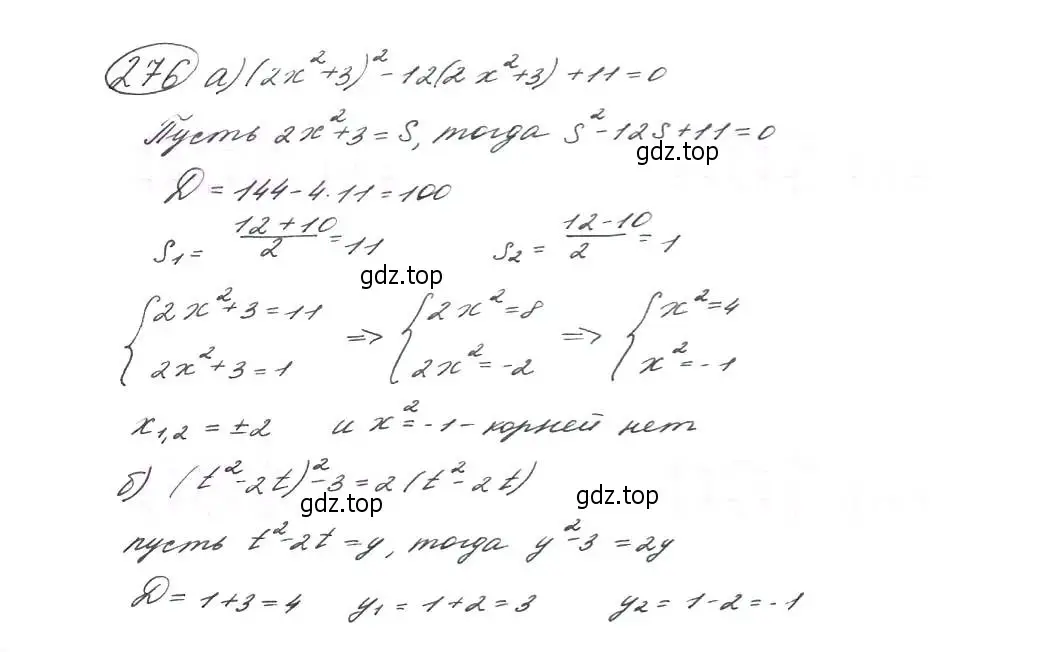 276 а) (2x²+3)²-12(2x²+3)+11=0
Пусть 2x²+3=S, тогда S²-12S+11=0
gdz.top
D=144-4·11=100
S₁= (12+10)/2 =11 S₂= (12-10)/2 =1
gdz.top
{2x²+3=11 => {2x²=8 => {x²=4
{2x²+3=1 {2x²=-2 {x²=-1
x₁,₂=±2 и x²=-1-корней нет
б) (t²-2t)²-3=2(t²-2t)
gdz.top gdz.top
пусть t²-2t=y, тогда y²-3=2y
D=1+3=4 y₁=1+2=3 y₂=1-2=-1